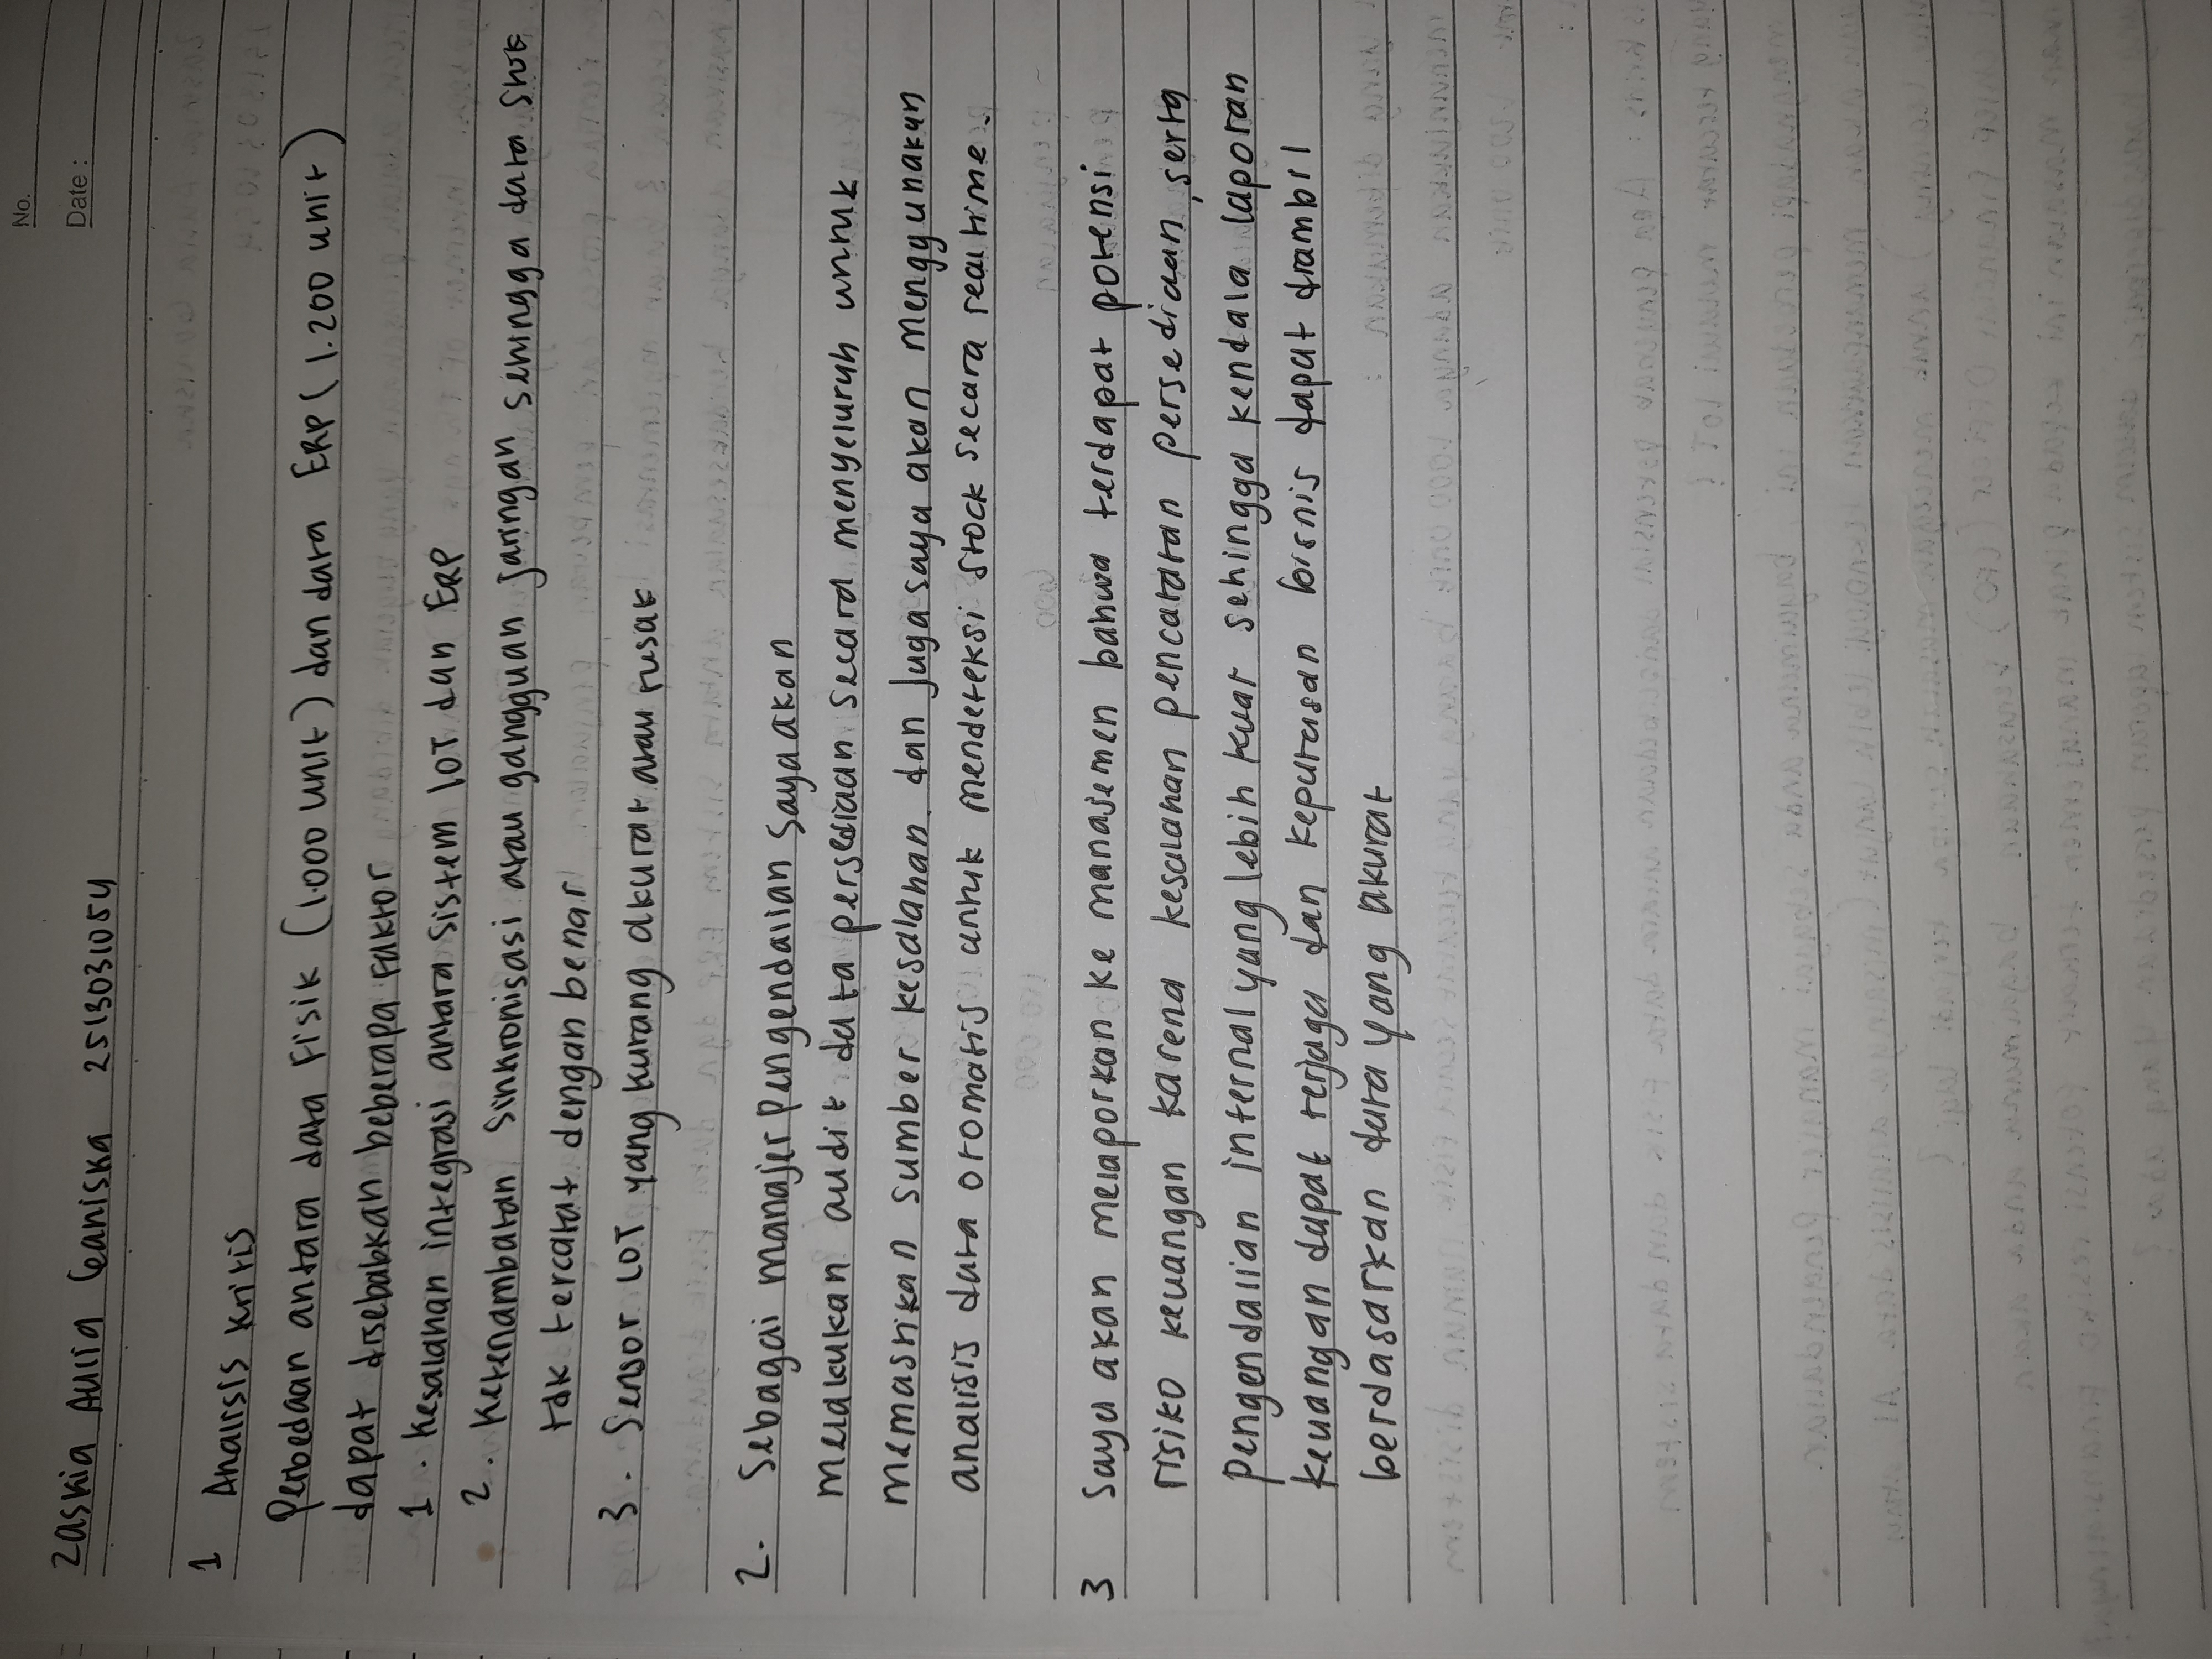 No.
Date:
Zaskia Aulia Ganiska 2513031054
1 Analisis kritis
Perbedaan antara data Fisik (1.000 unit) dan data ERP (1.200 unit)
dapat disebabkan beberapa Faktor
1. Kesalahan integrasi antara sistem IOT dan ERP
2. Keterlambatan sinkronisasi atau gangguan jaringan sehingga data stok
tdk tercatat dengan benar
3. Sensor IOT yang kurang akurat atau rusak
2. Sebagai manajer pengendalian saya akan
melakukan audit data persediaan secara menyeluruh untuk
memastikan sumber kesalahan. dan juga saya akan menggunakan
analisis data otomatis untuk mendeteksi stock secara real time.
3 Saya akan melaporkan ke manajemen bahwa terdapat potensi
risiko keuangan karena kesalahan pencatatan persediaan, serta
pengendalian internal yang lebih kuat sehingga kendala laporan
keuangan dapat terjaga dan keputusan bisnis dapat diambil
berdasarkan data yang akurat